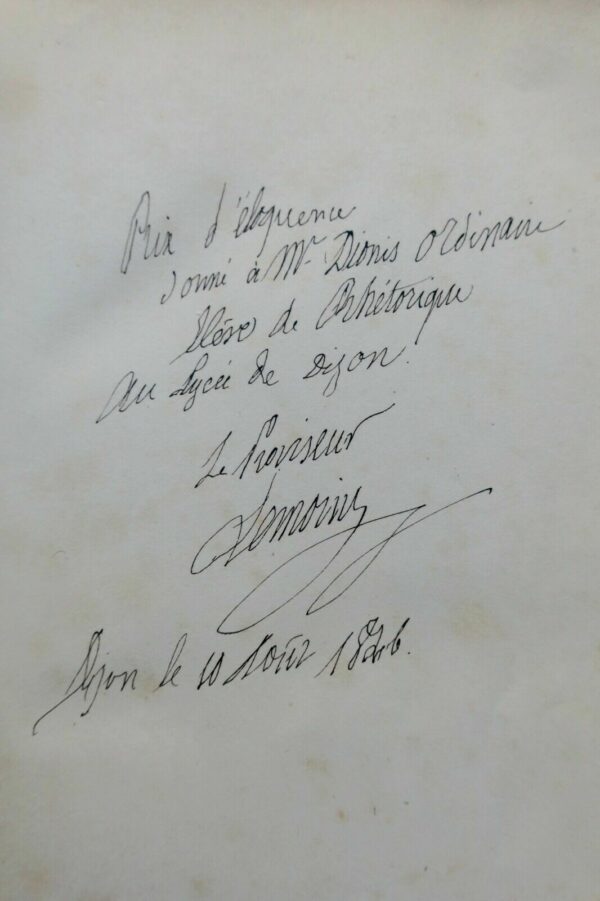 Prix d'éloquence
donné à Mr Dionis Ordinaire
Elève de Rhétorique
au Lycée de Dijon.
Le Proviseur
Lemoine
Dijon le 10 Août 1846.